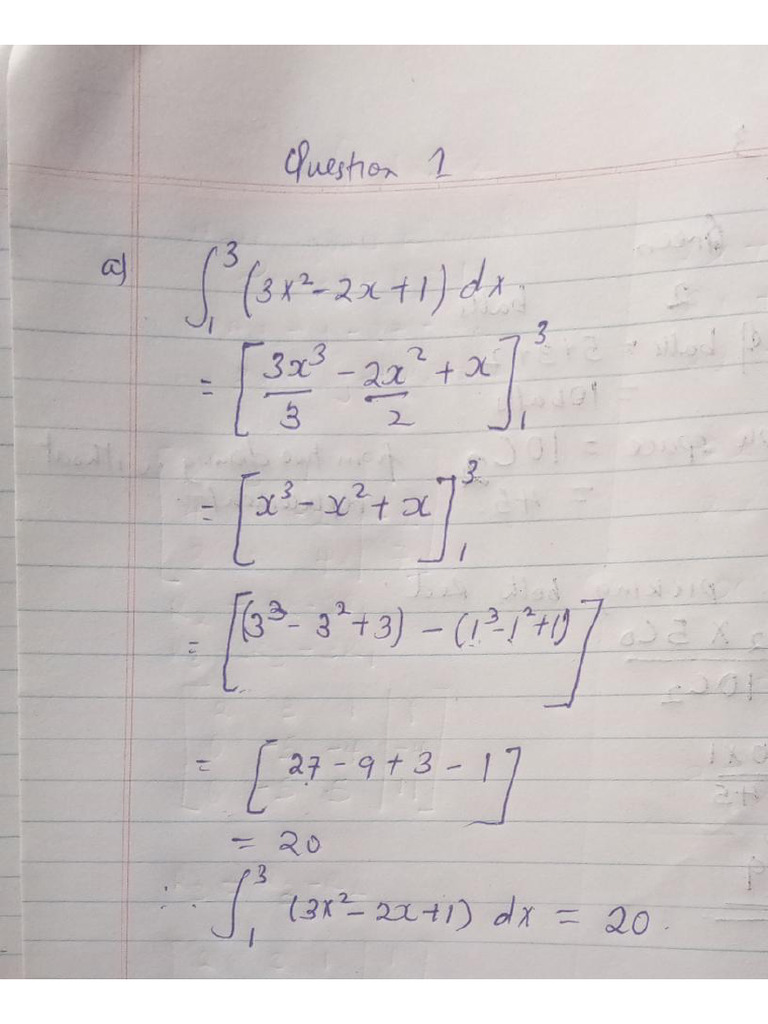 Question 1
a) ∫₁³ (3x² - 2x + 1) dx.
= [3x³/3 - 2x²/2 + x]₁³
= [x³ - x² + x]₁³
= [(3³ - 3² + 3) - (1³ - 1² + 1)]
= [27 - 9 + 3 - 1]
= 20
∴ ∫₁³ (3x² - 2x + 1) dx = 20.